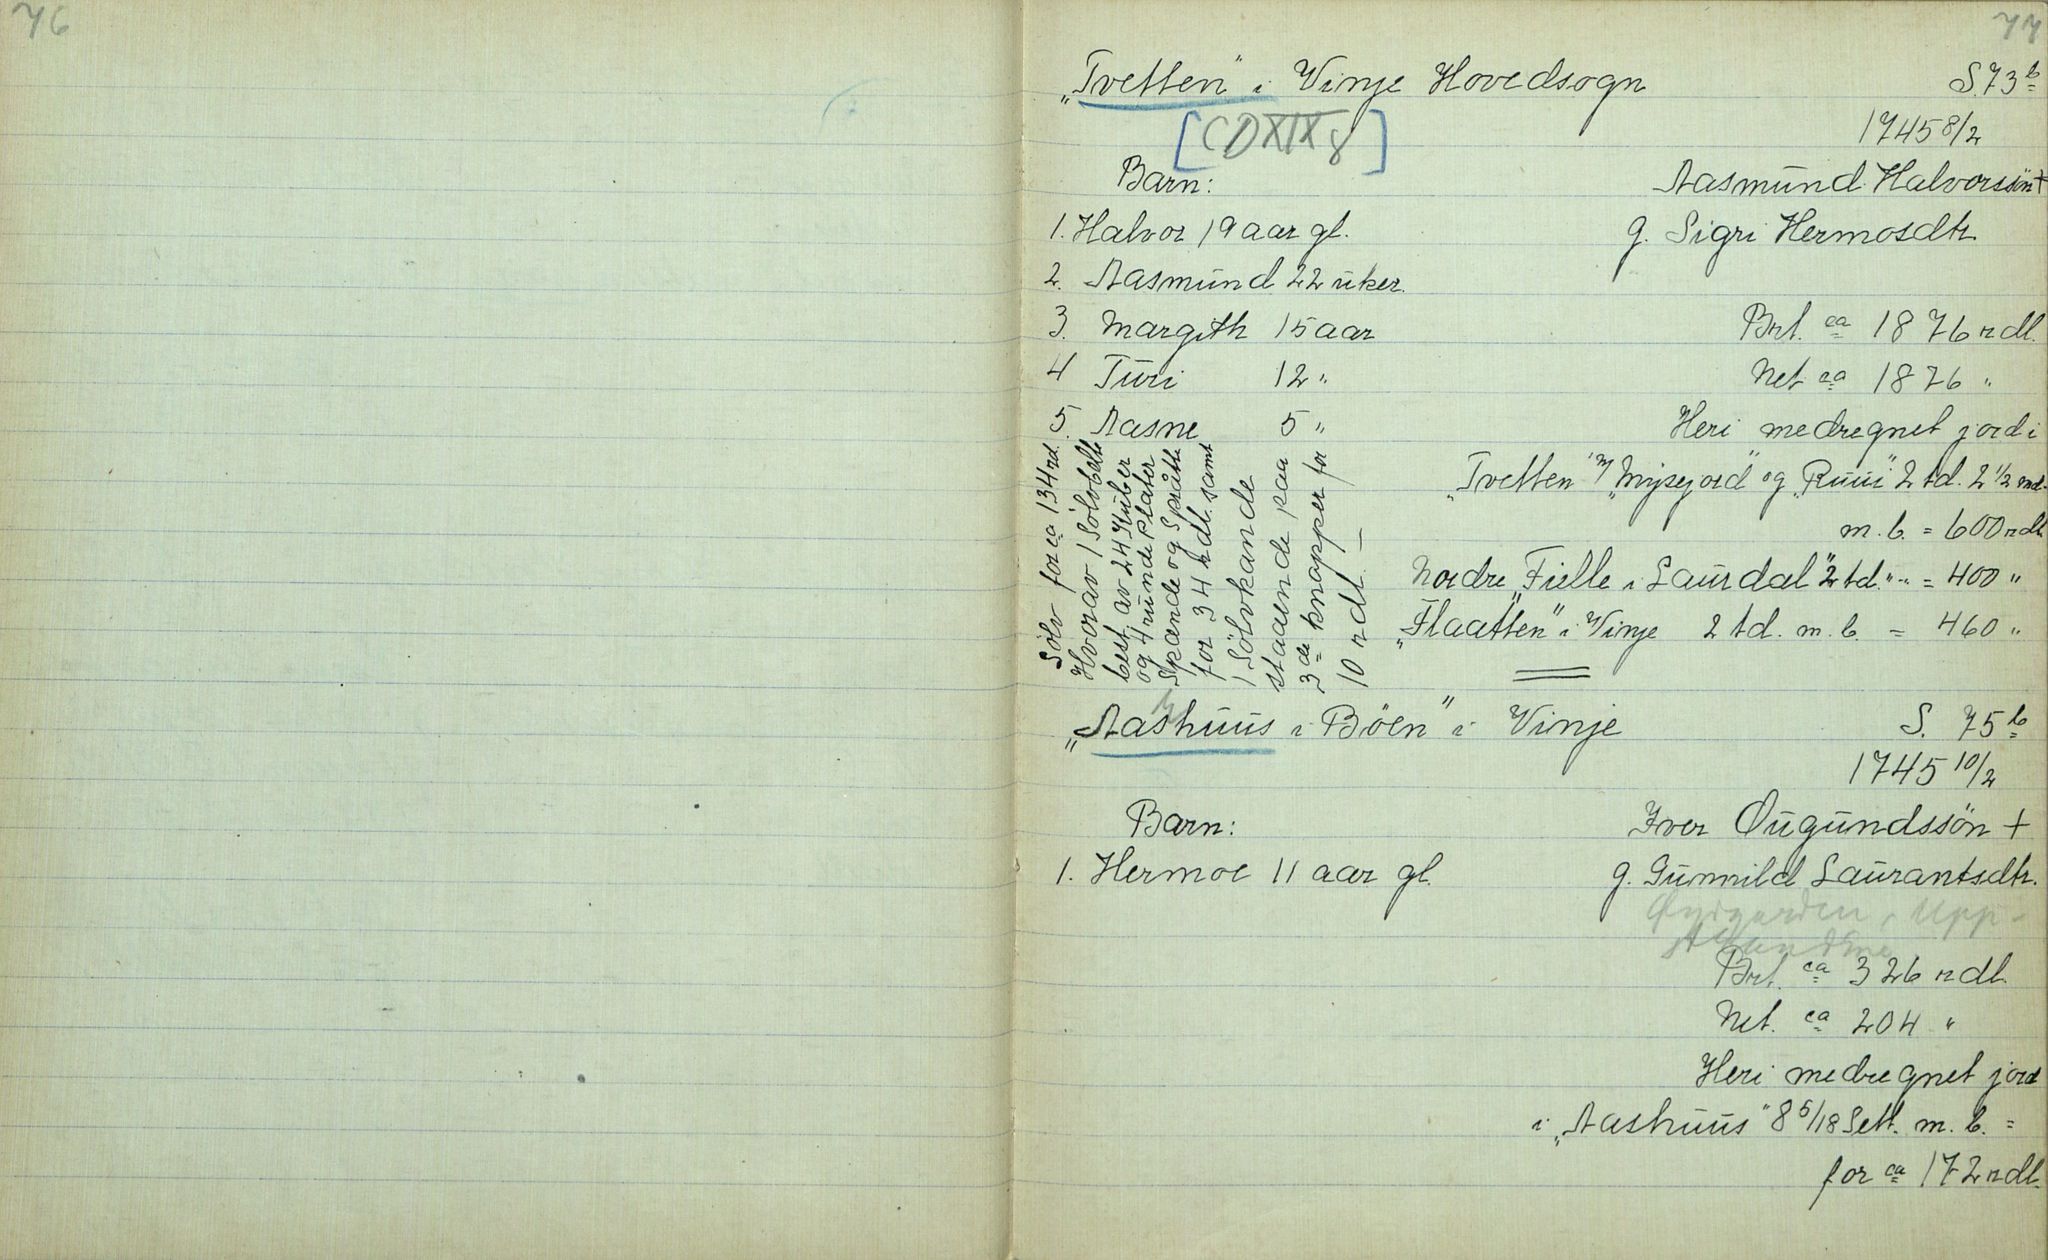 76
77
„Tvetten" i Vinje Hovedsogn S. 73 b
[CDXIX 8] 1745 8/2
Barn: Aasmund Halvorssön +
1. Halvor 19 aar gl. g. Sigri Hermosdtr.
2. Aasmund 22 uker.
3. Margith 15 aar Brt. ca 1876 rdl.
4 Turi 12 " Net ca 1876 "
5. Aasne 5 " Heri medregnet jord i
„Tvetten" m „Mysejord" og „Ruui" 2 td. 2 1/2 smd.
m. b. = 600 rdl.
Nordre „Fielle i Laurdal" 2 td. " " = 400 "
„Flaatten" i Vinje 2 td. m. b. = 460 "
Sölv for ca 134 rd.
Hvorav 1 Sölvbelte
best. av 24 Kuber
og 4 runde Plater
Spænde og Sprötte
for 34 rdl. samt
1 Sölvkande
staaende paa
3 de knapper for
10 rdl. —
„Aashuus i Böen" i Vinje S. 75 b
1745 10/2
Barn: Iver Öugundssön +
1. Hermoe 11 aar gl. g. Gunnild Laurantsdtr.
Øygarden, Upp-
Brt. ca 326 rdl.
Net. ca 204 "
Heri medregnet jord
i „Aashuus" 8 5/18 Sett. m. b. =
for ca 172 rdl.